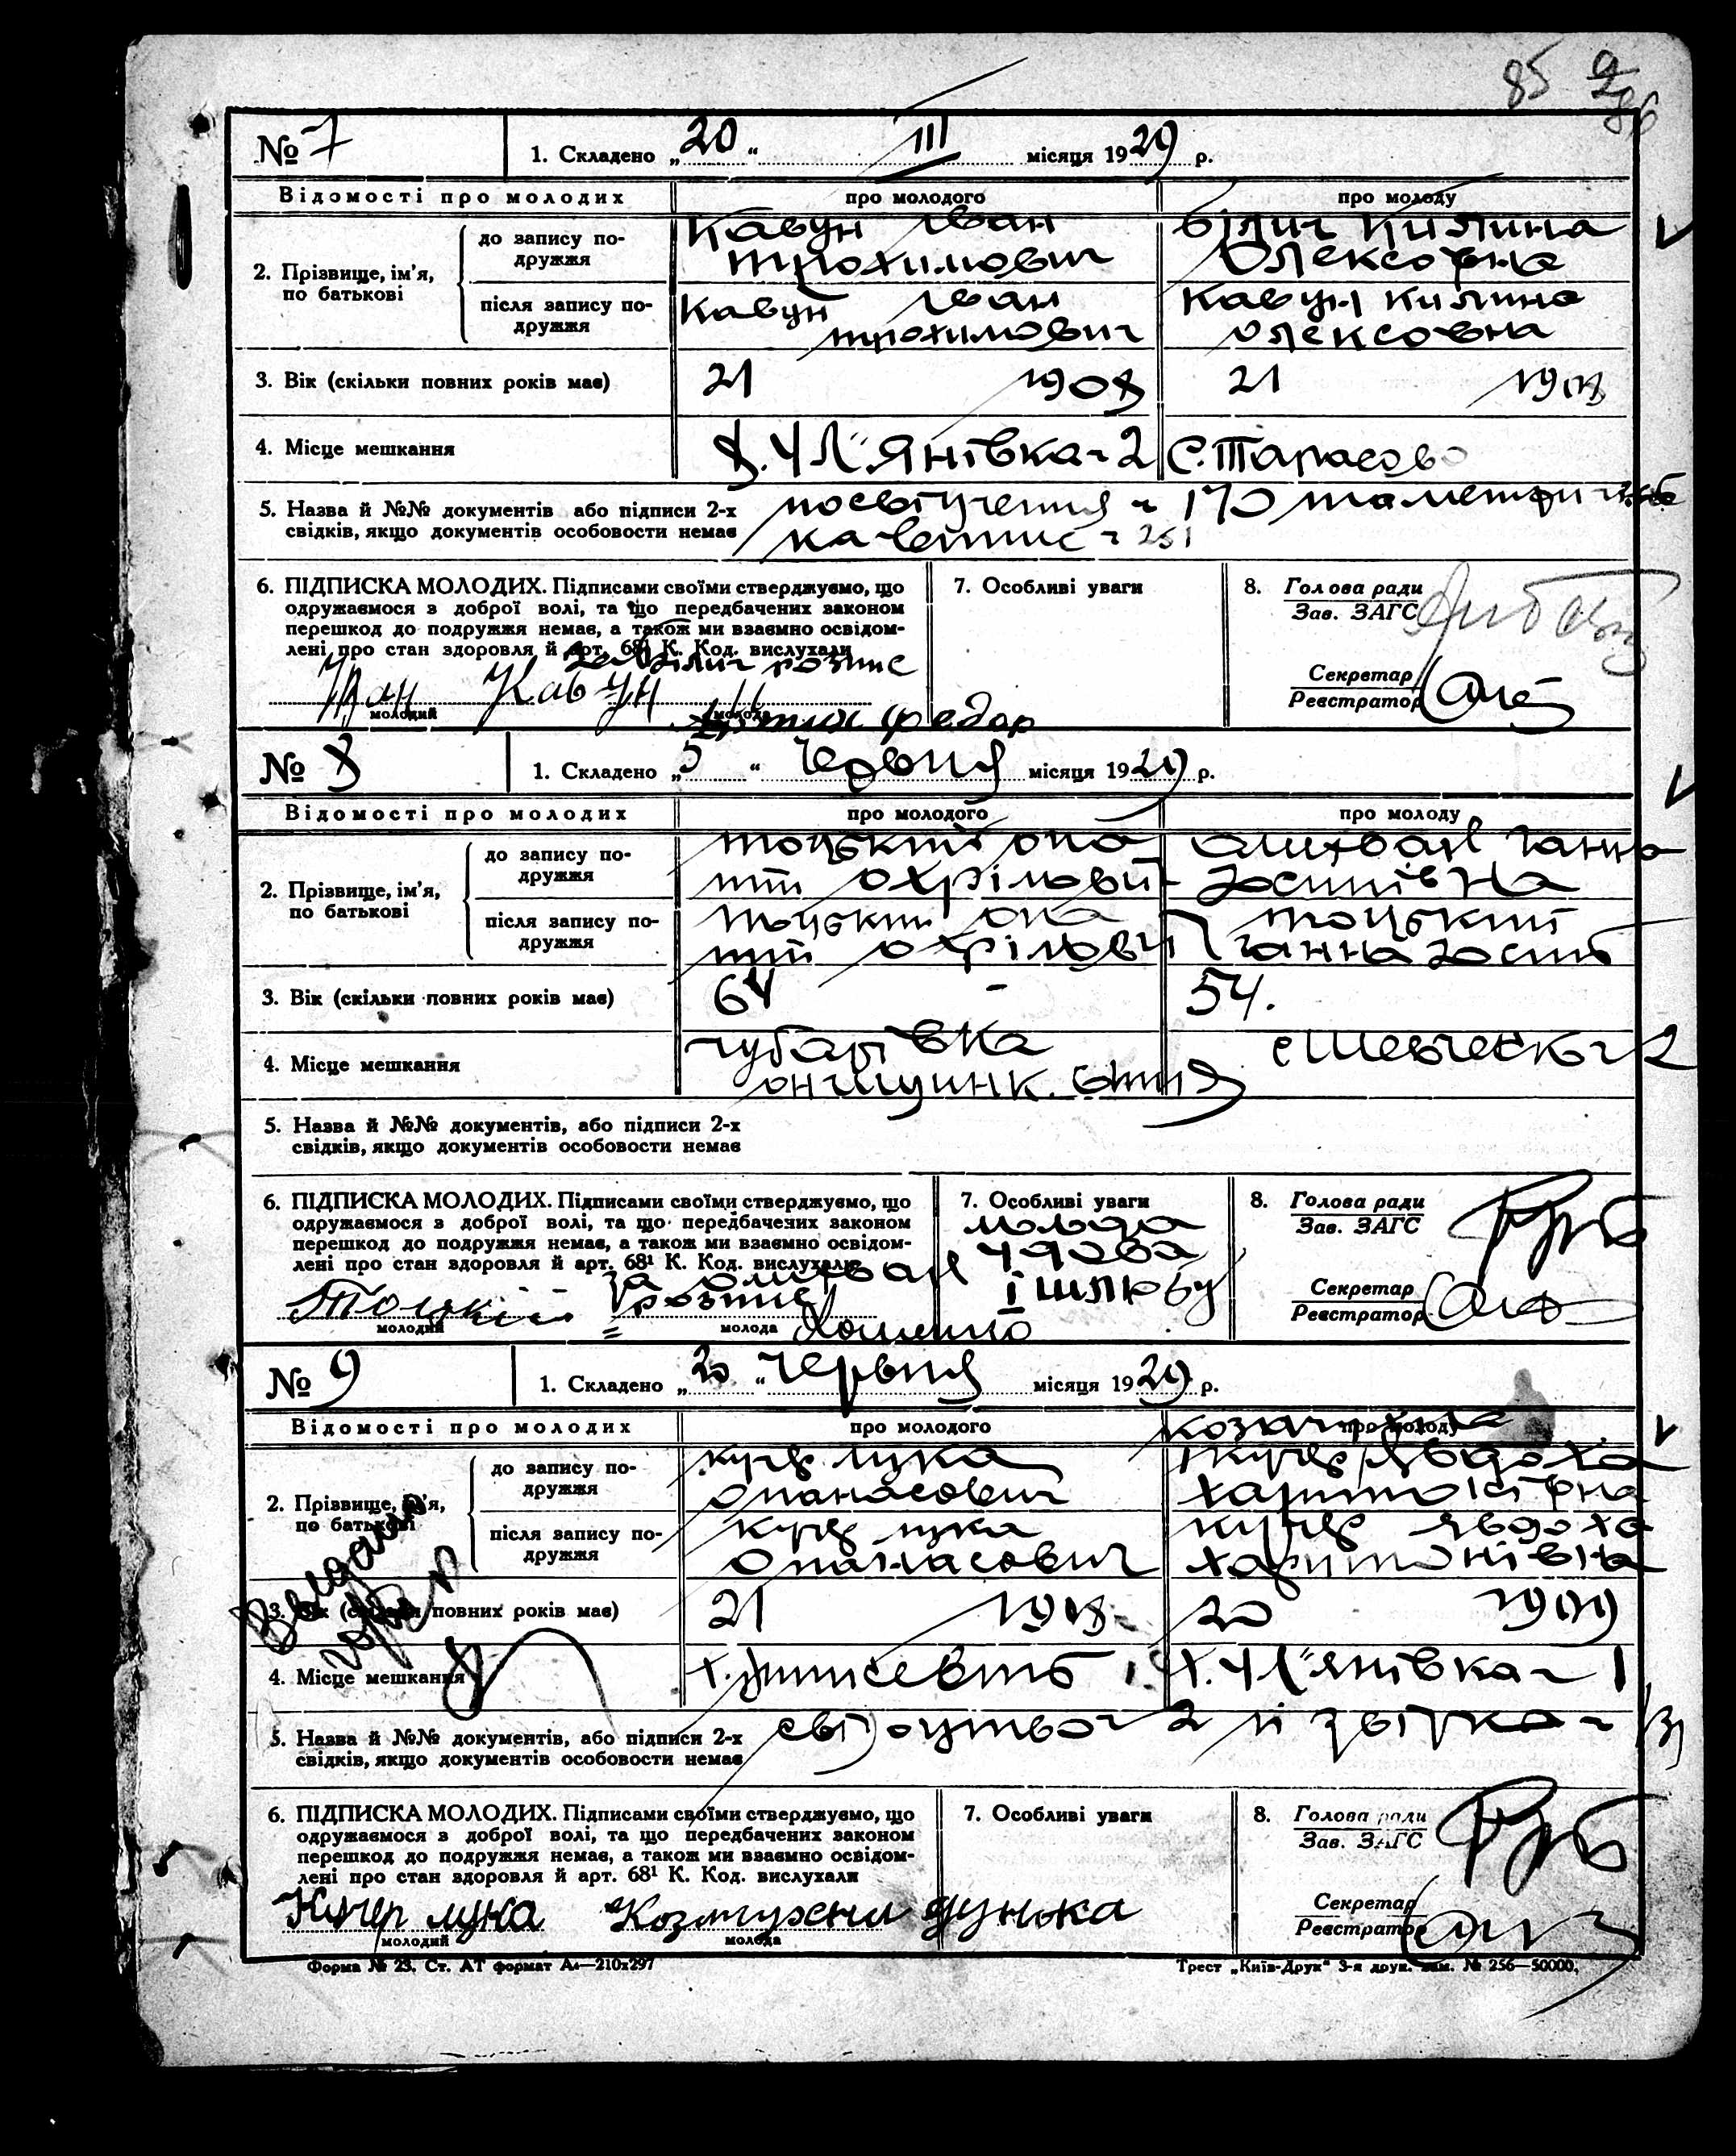 85 86
№ 7 1. Складено „20“ III місяця 1929 р.
Відомості про молодих про молодого про молоду
2. Прізвище, ім'я, по батькові
до запису подружжя
Кавун Іван Білич Килина
Трохимович Олексовна
після запису подружжя
Кавун Іван Кавун Килина
Трохимович Олексовна
3. Вік (скільки повних років має) 21 1908 21 1908
4. Місце мешкання Х. Ул"янівка 2 С. Тарасово
5. Назва й №№ документів або підписи 2-х
свідків, якщо документів особовости немає
посвідчення 170
251
6. ПІДПИСКА МОЛОДИХ. Підписами своїми стверджуємо, що
одружаємося з доброї волі, та що передбачених законом
перешкод до подружжя немає, а також ми взаємно освідом-
лені про стан здоровля й арт. 68¹ К. Код. вислухали
за Білич розпис
Іван Кавун Федор
молодий молода
7. Особливі уваги
8. Голова ради
Зав. ЗАГС
Секретар
Реєстратор
№ 8 1. Складено „5“ Червня місяця 1929 р.
Відомості про молодих про молодого про молоду
2. Прізвище, ім'я, по батькові
до запису подружжя
Тоцький Опа Ганна
Йосипівна
після запису подружжя
Тоцький Опа Тоцький
Ганна Йосип
3. Вік (скільки повних років має) 64 - 54.
4. Місце мешкання
Чубарівка
2
5. Назва й №№ документів, або підписи 2-х
свідків, якщо документів особовости немає
6. ПІДПИСКА МОЛОДИХ. Підписами своїми стверджуємо, що
одружаємося з доброї волі, та що передбачених законом
перешкод до подружжя немає, а також ми взаємно освідом-
лені про стан здоровля й арт. 68¹ К. Код. вислухали
за розпис
Тоцкій
молодий молода
7. Особливі уваги
молода
удова
І шлюбу
8. Голова ради
Зав. ЗАГС
Секретар
Реєстратор
№ 9 1. Складено Червня місяця 1929 р.
Відомості про молодих про молодого про молоду
2. Прізвище, ім'я, по батькові
до запису подружжя
Кучер Лука Кучер Явдоха
Опанасович Харитонівна
після запису подружжя
Кучер Лука Кучер Явдоха
Опанасович Харитонівна
3. Вік (скільки повних років має) 21 1908 20 1909
4. Місце мешкання Х. Х. Ул"янівка 1
5. Назва й №№ документів, або підписи 2-х
свідків, якщо документів особовости немає
6. ПІДПИСКА МОЛОДИХ. Підписами своїми стверджуємо, що
одружаємося з доброї волі, та що передбачених законом
перешкод до подружжя немає, а також ми взаємно освідом-
лені про стан здоровля й арт. 68¹ К. Код. вислухали
Кучер Лука Дунька
молодий молода
7. Особливі уваги
8. Голова ради
Зав. ЗАГС
Секретар
Реєстратор
Форма № 23. Ст. АТ формат А₄—210х297 Трест „Київ-Друк“ 3-я друк. зам. № 256—50000.